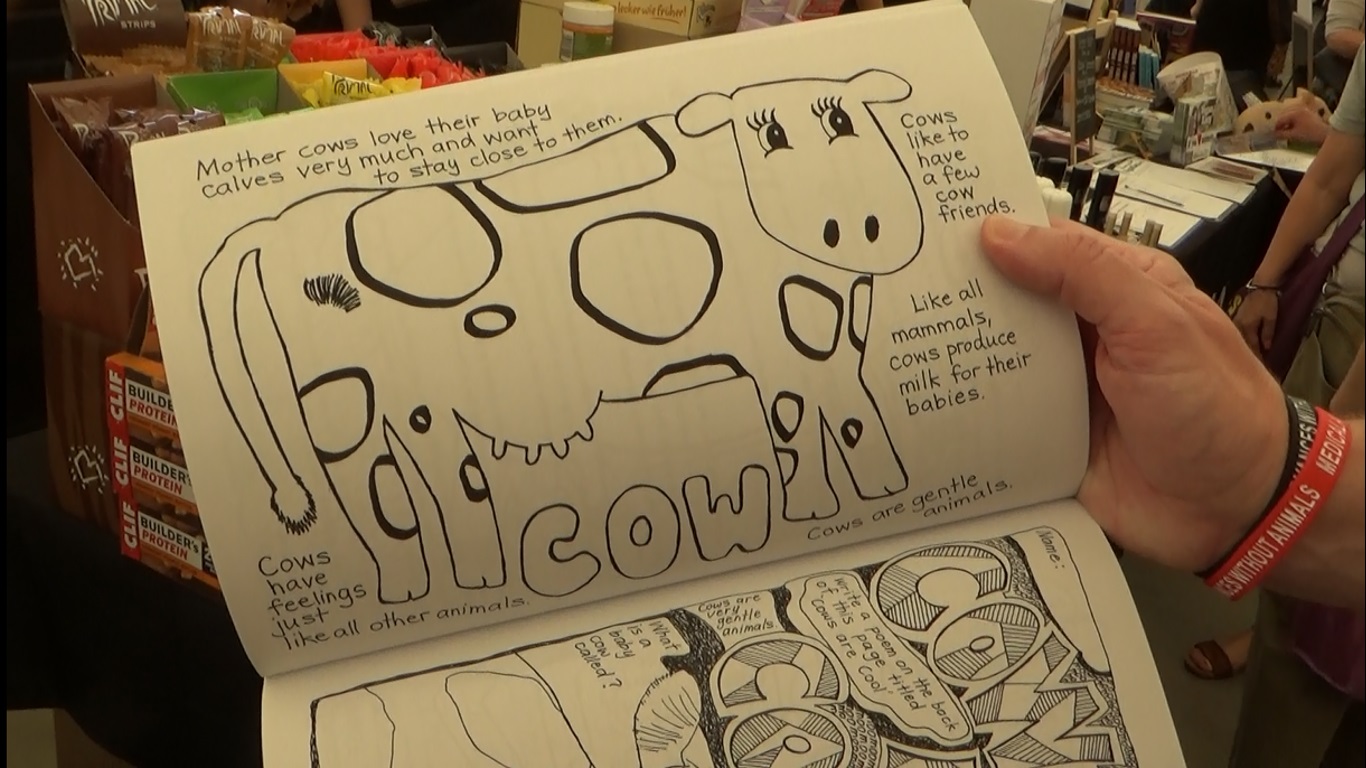 PRIMAL
STRIPS
lecker wie früher!
Mother cows love their baby
calves very much and want
to stay close to them.
Cows
like to
have
a few
cow
friends.
Like all
mammals,
cows produce
milk for their
babies.
Cows are gentle
animals.
COW
Cows
have
feelings
just
like all other animals.
Name:
COW
Write a poem on the back
of this page titled
"Cows are Cool"
Cows are
very
gentle
animals.
What
is a
baby
cow
called?
CLIF
BUILDER'S
PROTEIN
CLIF
BUILDER'S
PROTEIN
CLIF
BUILDER'S
PROTEIN
MEDICAL
WITHOUT ANIMALS